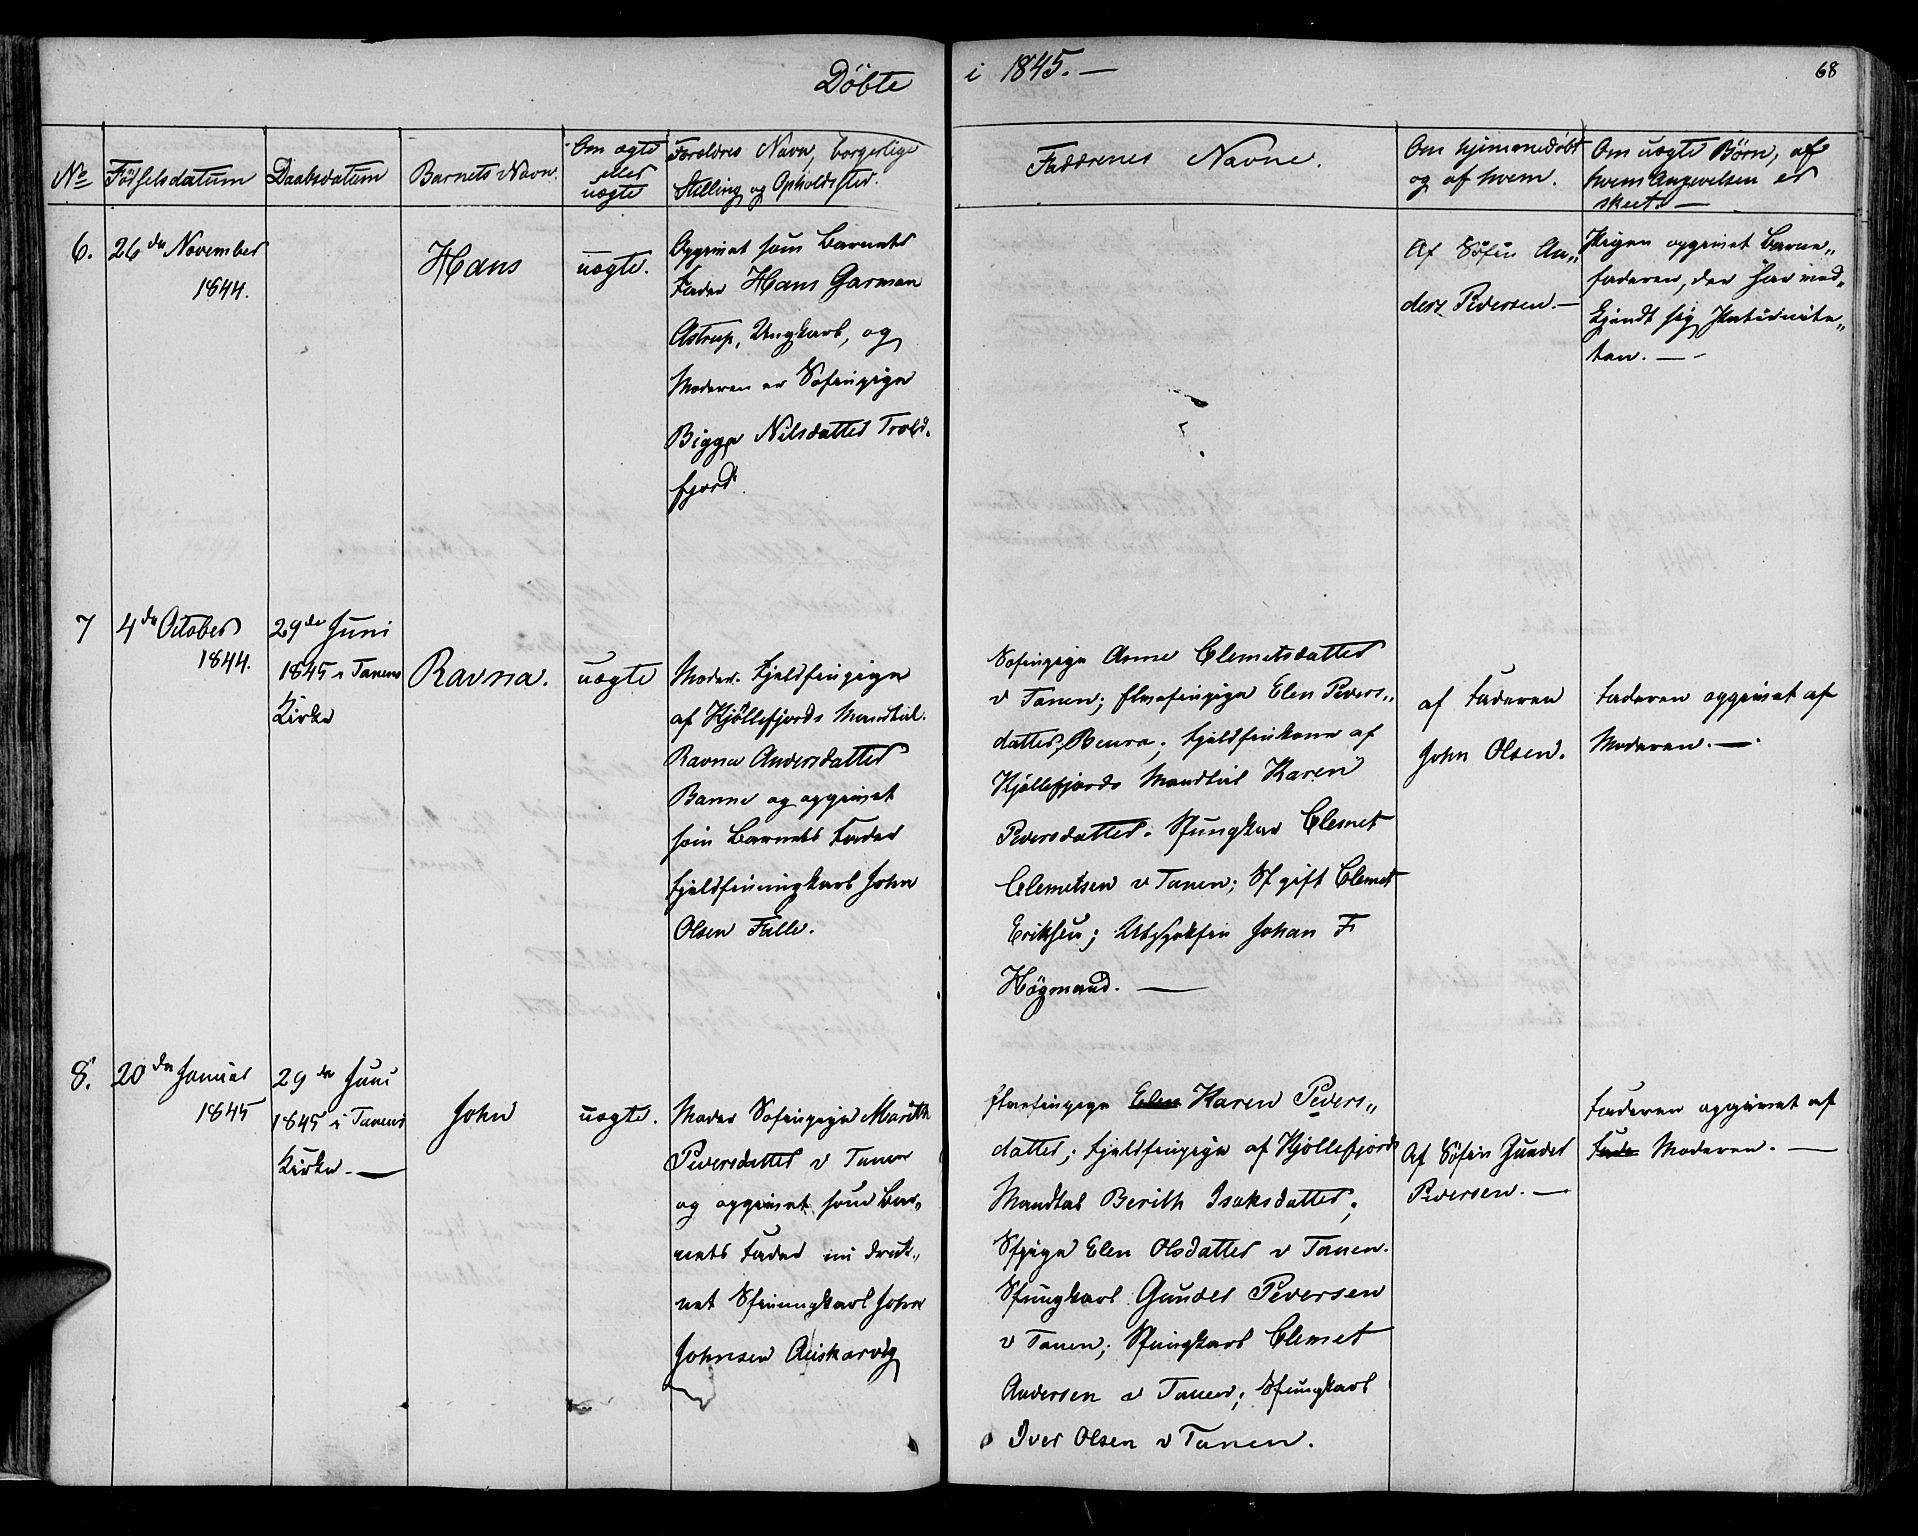 Döbte i 1845. —
68
No
Födselsdatum
Daabsdatum
Barnets Navn.
Om ægte
eller
uægte
Forældres Navn, borgerlige
Stilling og Opholdssted.
Faddernes Navne.
Om hjemmedöbt
og af hvem.
Om uægte Börn, af
hvem Angivelsen er
skeet. —
6.
26de November
1844.
Hans
uægte.
Opgivet som Barnets
Fader Hans Garman
Astrup, Ungkarl, og
Moderen er Söfinpige
Bigga Nilsdatter Trold-
fjord.
Af Söfin An-
ders Pedersen. —
Pigen opgivet Barne-
faderen, der har ved-
kjendt sig Paternite-
ten. —
7
4de October
1844.
29de Juni
1845 i Tanens
Kirke
Ravna.
uægte
Moder. Fjeldfinpige
af Kjöllefjords Mandtal.
Ravna Andersdatter
Banne og opgivet
som Barnets Fader
Fjeldfinungkarl John
Olsen Falle.
Sofinpige Anne Clemetsdatter
v Tanen; Elvefinpige Elen Peders-
datter, ; Fjeldfinkone af
Kjöllefjords Mandtal Karen
Pedersdatter. Sfungkar Clemet
Clemetsen v Tanen; Sf gift Clemet
Eriksen; Johan F
Högmand. —
af Faderen
John Olsen.
Faderen opgivet af
Moderen. —
8.
20de Januar
1845
29de Juni
1845 i Tanens
Kirke. —
John
uægte.
Moder Sofinpige Marith
Pedersdatter v Tanen
og opgivet som Bar-
nets Fader nu druk-
net Sfinungkarl John
Johnsen
Elvefinpige Elen Karen Peders-
datter; Fjeldfinpige af Kjöllefjords
Mandtal Berith Isaksdatter;
Sfpige Elen Olsdatter v Tanen.
Sfungkarl Gunder Pedersen
v Tanen; Sfungkarl Clemet
Andersen v Tanen; Sfungkarl
Iver Olsen v Tanen.
Af Söfin Gunder
Pedersen. —
Faderen opgivet af
Fade Moderen. —